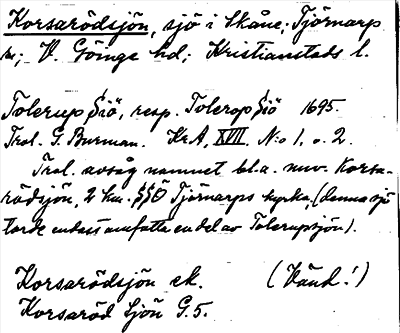 Korsarödsjön, sjö i Skåne; Tjörnarps
sn; V. Göinge hd; Kristianstads l.
Tolerup Siö, resp. Tolerop Siö 1695.
Trol. G. Burman. KrA, XVII. N:o 1. o. 2.
Trol. avsåg namnet bl.a. nuv. Korsa-
rödsjön, 2 km. SSÖ Tjörnarps kyrka, (denna sjö
torde endast omfatta en del av Tolerupsjön).
Korsarödsjön ek. (Vänd!)
Korsaröd Sjön G.5.